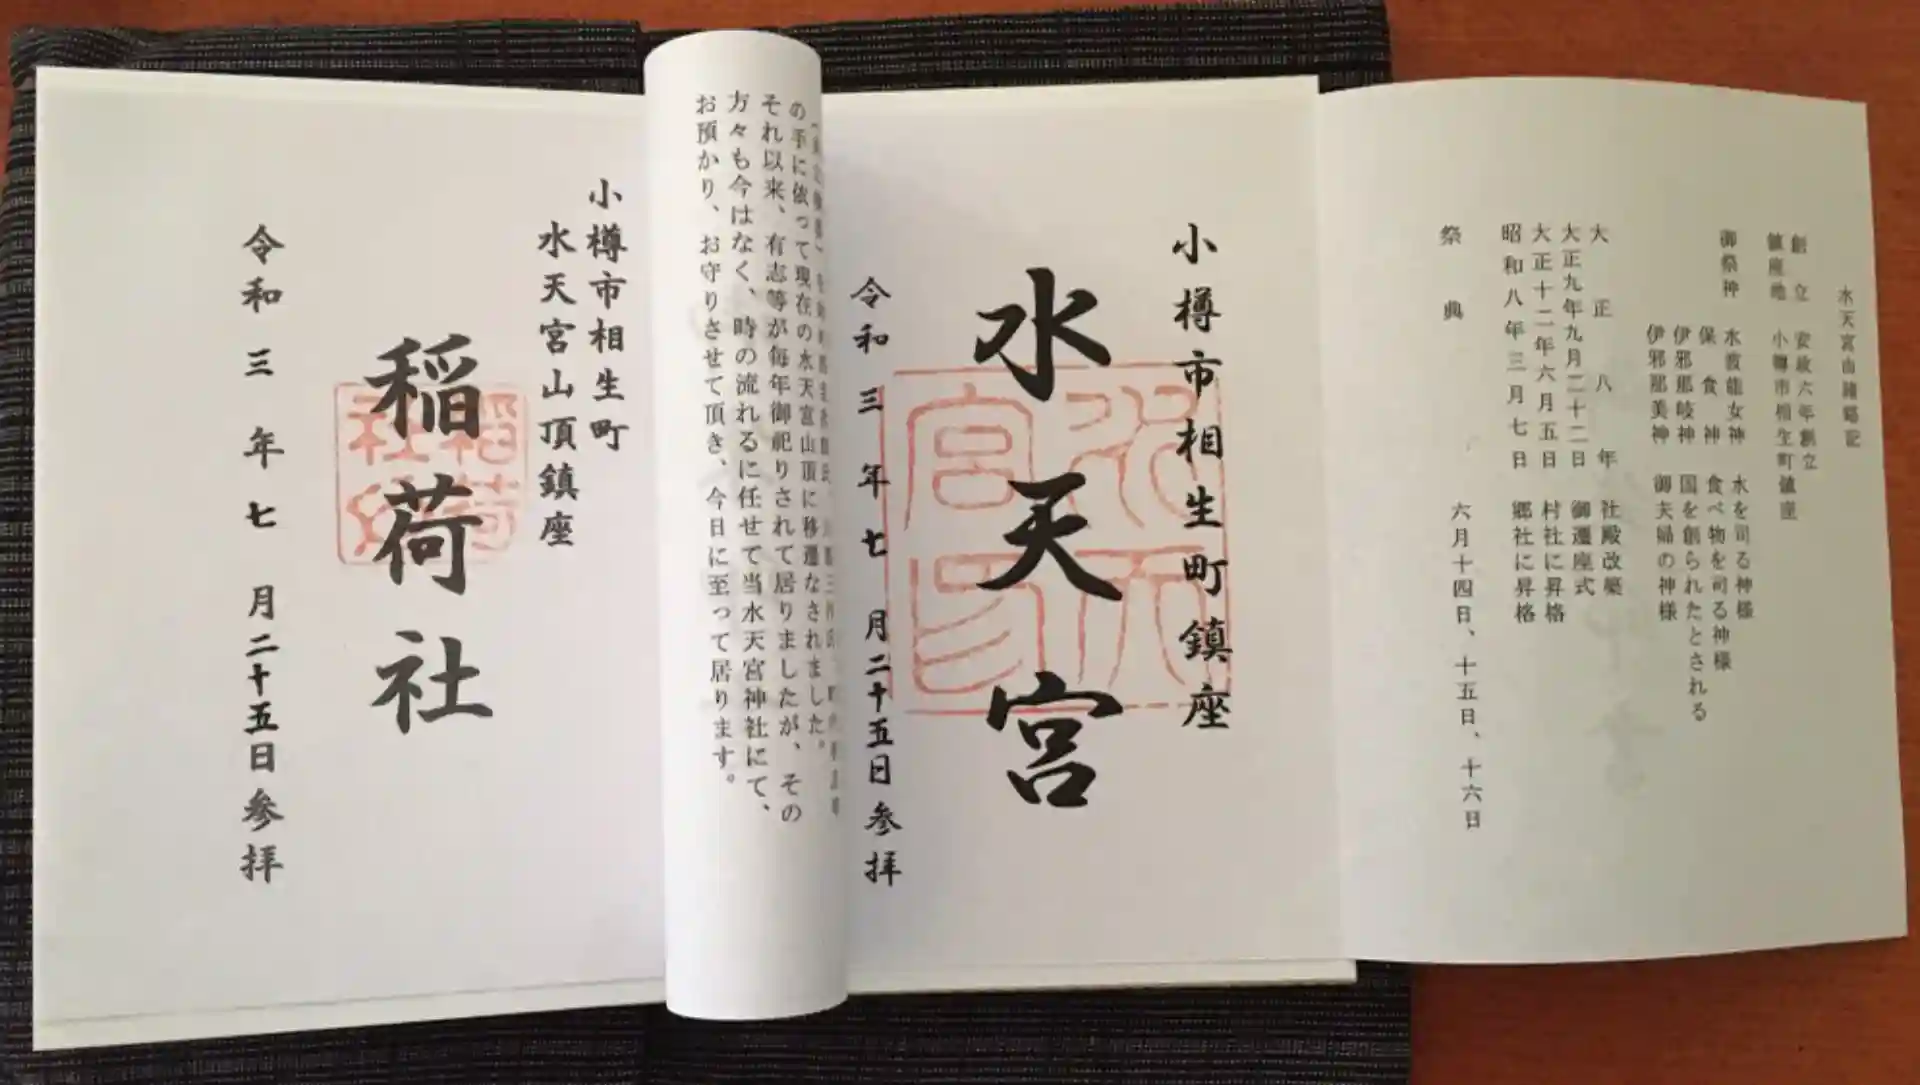 水天宮由緒略記
創立 安政六年創立
鎮座地 小樽市相生町鎮座
御祭神 水波能女神 水を司る神様
保食神 食べ物を司る神様
伊邪那岐神 国を創られたとされる
伊邪那美神 御夫婦の神様
大正八年 社殿改築
大正九年九月二十二日 御遷座式
大正十二年六月五日 村社に昇格
昭和八年三月七日 郷社に昇格
祭典 六月十四日、十五日、十六日
小樽市相生町鎮座
水天宮
令和三年七月二十五日参拝
の手に依って現在の水天宮山頂に移遷なされました。
それ以来、有志等が毎年御祀りされて居りましたが、その
方々も今はなく、時の流れるに任せて当水天宮神社にて、
お預かり、お守りさせて頂き、今日に至って居ります。
小樽市相生町
水天宮山頂鎮座
稲荷社
令和三年七月二十五日参拝